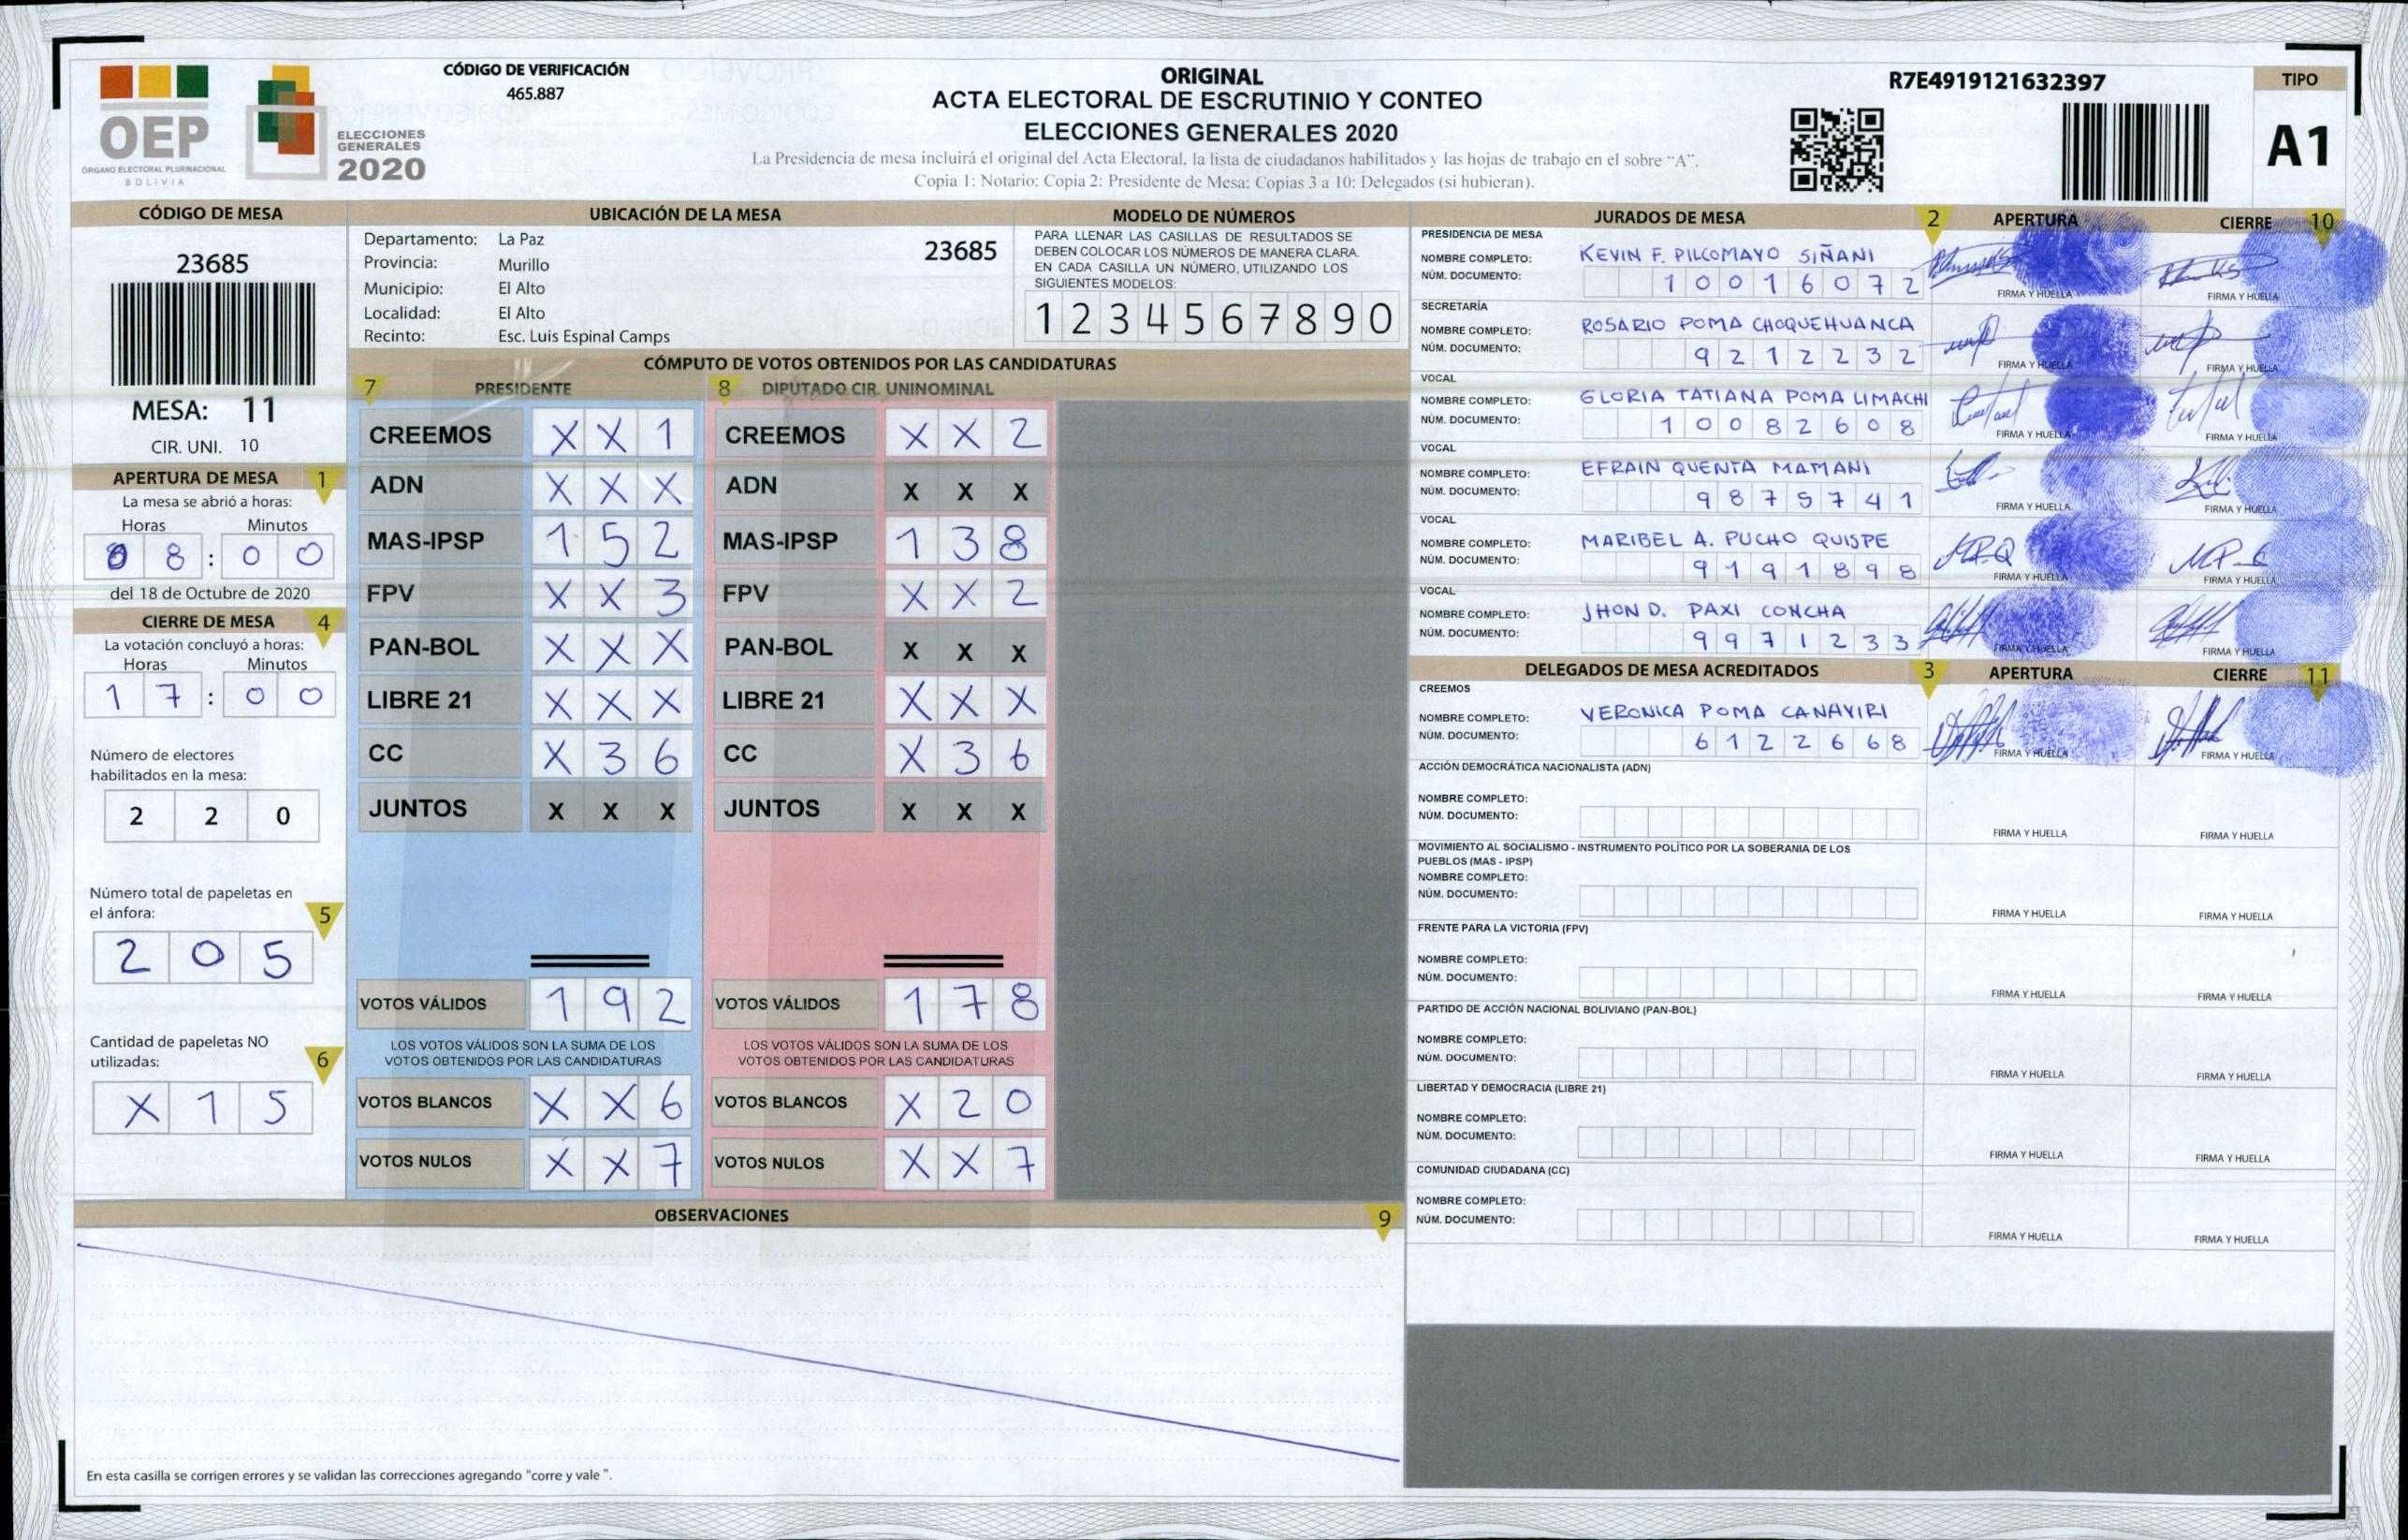 CÓDIGO DE VERIFICACIÓN
465.887
OEP
ÓRGANO ELECTORAL PLURINACIONAL
BOLIVIA
ELECCIONES
GENERALES
2020
ORIGINAL
ACTA ELECTORAL DE ESCRUTINIO Y CONTEO
ELECCIONES GENERALES 2020
La Presidencia de mesa incluirá el original del Acta Electoral, la lista de ciudadanos habilitados y las hojas de trabajo en el sobre "A".
Copia 1: Notario; Copia 2: Presidente de Mesa; Copias 3 a 10: Delegados (si hubieran).
R7E4919121632397
TIPO
A1
CÓDIGO DE MESA
23685
MESA: 11
CIR. UNI. 10
APERTURA DE MESA 1
La mesa se abrió a horas:
Horas Minutos
08 : 00
del 18 de Octubre de 2020
CIERRE DE MESA 4
La votación concluyó a horas:
Horas Minutos
17 : 00
Número de electores
habilitados en la mesa:
2 2 0
Número total de papeletas en
el ánfora: 5
2 0 5
Cantidad de papeletas NO
utilizadas: 6
X 1 5
UBICACIÓN DE LA MESA
Departamento: La Paz 23685
Provincia: Murillo
Municipio: El Alto
Localidad: El Alto
Recinto: Esc. Luis Espinal Camps
MODELO DE NÚMEROS
PARA LLENAR LAS CASILLAS DE RESULTADOS SE
DEBEN COLOCAR LOS NÚMEROS DE MANERA CLARA.
EN CADA CASILLA UN NÚMERO, UTILIZANDO LOS
SIGUIENTES MODELOS:
1 2 3 4 5 6 7 8 9 0
CÓMPUTO DE VOTOS OBTENIDOS POR LAS CANDIDATURAS
7 PRESIDENTE 8 DIPUTADO CIR. UNINOMINAL
CREEMOS X X 1 CREEMOS X X 2
ADN X X X ADN X X X
MAS-IPSP 1 5 2 MAS-IPSP 1 3 8
FPV X X 3 FPV X X 2
PAN-BOL X X X PAN-BOL X X X
LIBRE 21 X X X LIBRE 21 X X X
CC X 3 6 CC X 3 6
JUNTOS X X X JUNTOS X X X
VOTOS VÁLIDOS 1 9 2 VOTOS VÁLIDOS 1 7 8
LOS VOTOS VÁLIDOS SON LA SUMA DE LOS LOS VOTOS VÁLIDOS SON LA SUMA DE LOS
VOTOS OBTENIDOS POR LAS CANDIDATURAS VOTOS OBTENIDOS POR LAS CANDIDATURAS
VOTOS BLANCOS X X 6 VOTOS BLANCOS X 2 0
VOTOS NULOS X X 7 VOTOS NULOS X X 7
OBSERVACIONES 9
En esta casilla se corrigen errores y se validan las correcciones agregando "corre y vale ".
JURADOS DE MESA 2 APERTURA CIERRE 10
PRESIDENCIA DE MESA
NOMBRE COMPLETO: KEVIN F. PILCOMAYO SIÑANI
NÚM. DOCUMENTO: 1 0 0 1 6 0 7 2
FIRMA Y HUELLA FIRMA Y HUELLA
SECRETARÍA
NOMBRE COMPLETO: ROSARIO POMA CHOQUEHUANCA
NÚM. DOCUMENTO: 9 2 1 2 2 3 2
FIRMA Y HUELLA FIRMA Y HUELLA
VOCAL
NOMBRE COMPLETO: GLORIA TATIANA POMA LIMACHI
NÚM. DOCUMENTO: 1 0 0 8 2 6 0 8
FIRMA Y HUELLA FIRMA Y HUELLA
VOCAL
NOMBRE COMPLETO: EFRAIN QUENTA MAMANI
NÚM. DOCUMENTO: 9 8 7 5 7 4 1
FIRMA Y HUELLA FIRMA Y HUELLA
VOCAL
NOMBRE COMPLETO: MARIBEL A. PUCHO QUISPE
NÚM. DOCUMENTO: 9 1 9 1 8 9 8
FIRMA Y HUELLA FIRMA Y HUELLA
VOCAL
NOMBRE COMPLETO: JHON D. PAXI CONCHA
NÚM. DOCUMENTO: 9 9 7 1 2 3 3
FIRMA Y HUELLA FIRMA Y HUELLA
DELEGADOS DE MESA ACREDITADOS 3 APERTURA CIERRE 11
CREEMOS
NOMBRE COMPLETO: VERONICA POMA CANAVIRI
NÚM. DOCUMENTO: 6 1 2 2 6 6 8
FIRMA Y HUELLA FIRMA Y HUELLA
ACCIÓN DEMOCRÁTICA NACIONALISTA (ADN)
NOMBRE COMPLETO:
NÚM. DOCUMENTO:
FIRMA Y HUELLA FIRMA Y HUELLA
MOVIMIENTO AL SOCIALISMO - INSTRUMENTO POLÍTICO POR LA SOBERANIA DE LOS
PUEBLOS (MAS - IPSP)
NOMBRE COMPLETO:
NÚM. DOCUMENTO:
FIRMA Y HUELLA FIRMA Y HUELLA
FRENTE PARA LA VICTORIA (FPV)
NOMBRE COMPLETO:
NÚM. DOCUMENTO:
FIRMA Y HUELLA FIRMA Y HUELLA
PARTIDO DE ACCIÓN NACIONAL BOLIVIANO (PAN-BOL)
NOMBRE COMPLETO:
NÚM. DOCUMENTO:
FIRMA Y HUELLA FIRMA Y HUELLA
LIBERTAD Y DEMOCRACIA (LIBRE 21)
NOMBRE COMPLETO:
NÚM. DOCUMENTO:
FIRMA Y HUELLA FIRMA Y HUELLA
COMUNIDAD CIUDADANA (CC)
NOMBRE COMPLETO:
NÚM. DOCUMENTO:
FIRMA Y HUELLA FIRMA Y HUELLA